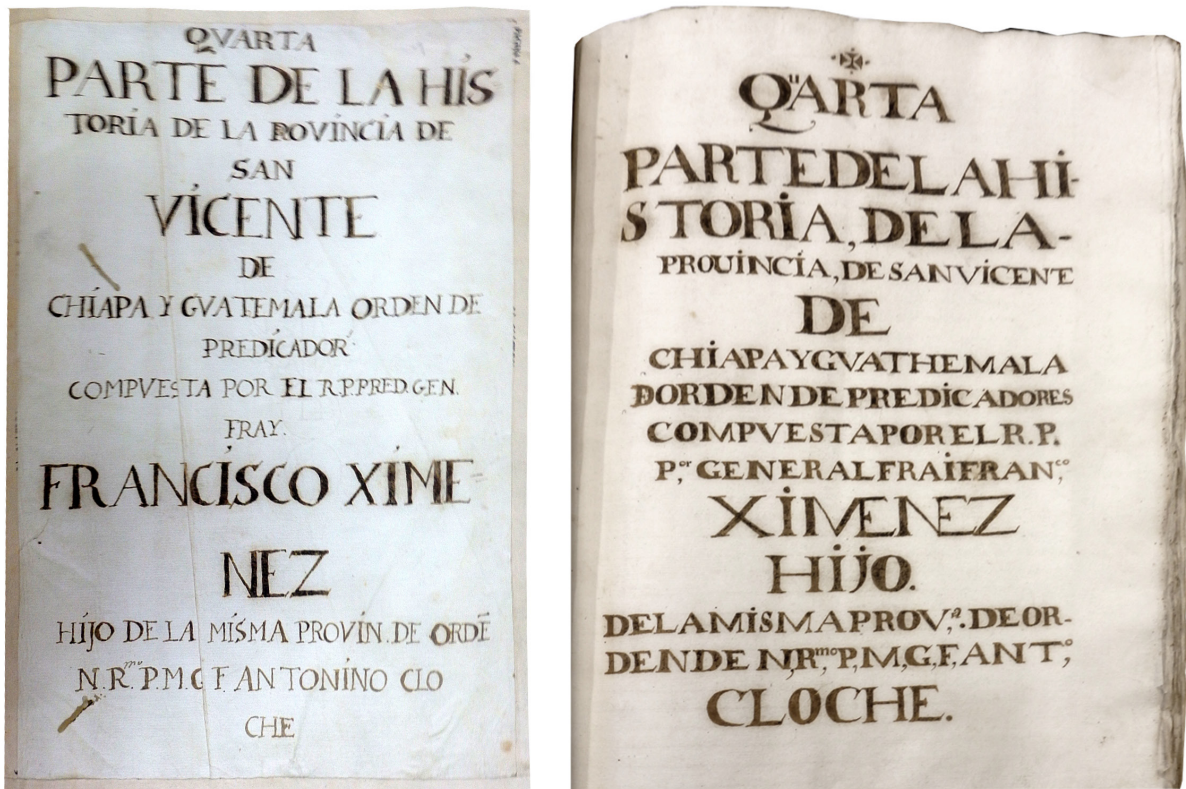 QVARTA
PARTE DE LA HÍS
TORÍA DE LA ROVÍNCÍA DE
SAN
VÍCENTE
DE
CHÍAPA Y GVATEMALA ORDEN DE
PREDÍCADOR
COMPVESTA POR EL R.P.PRED.GEN.
FRAY.
FRANCÍSCO XÍME
NEZ
HÍJO DE LA MÍSMA PROVÍN. DE ORDĒ
N.R.ᵐᵒ P.M.G F. ANTONÍNO CLO
CHE
QᵘARTA
PARTE DE LA HÍ-
STORÍA, DE LA-
PROUÍNCÍA, DE SAN VÍCENTE
DE
CHÍAPA Y GVATHEMALA
ORDEN DE PREDÍCADORES
COMPVESTA POR EL R.P.
P,ᵒʳ GENERAL FRAÍ FRANᶜᵒ,
XÍMENEZ
HÍJO.
DE LA MÍSMA PROV,ᵃ. DE OR-
DEN DE N,R,ᵐᵒ P,M,G,F,ANT,ᵒ
CLOCHE.